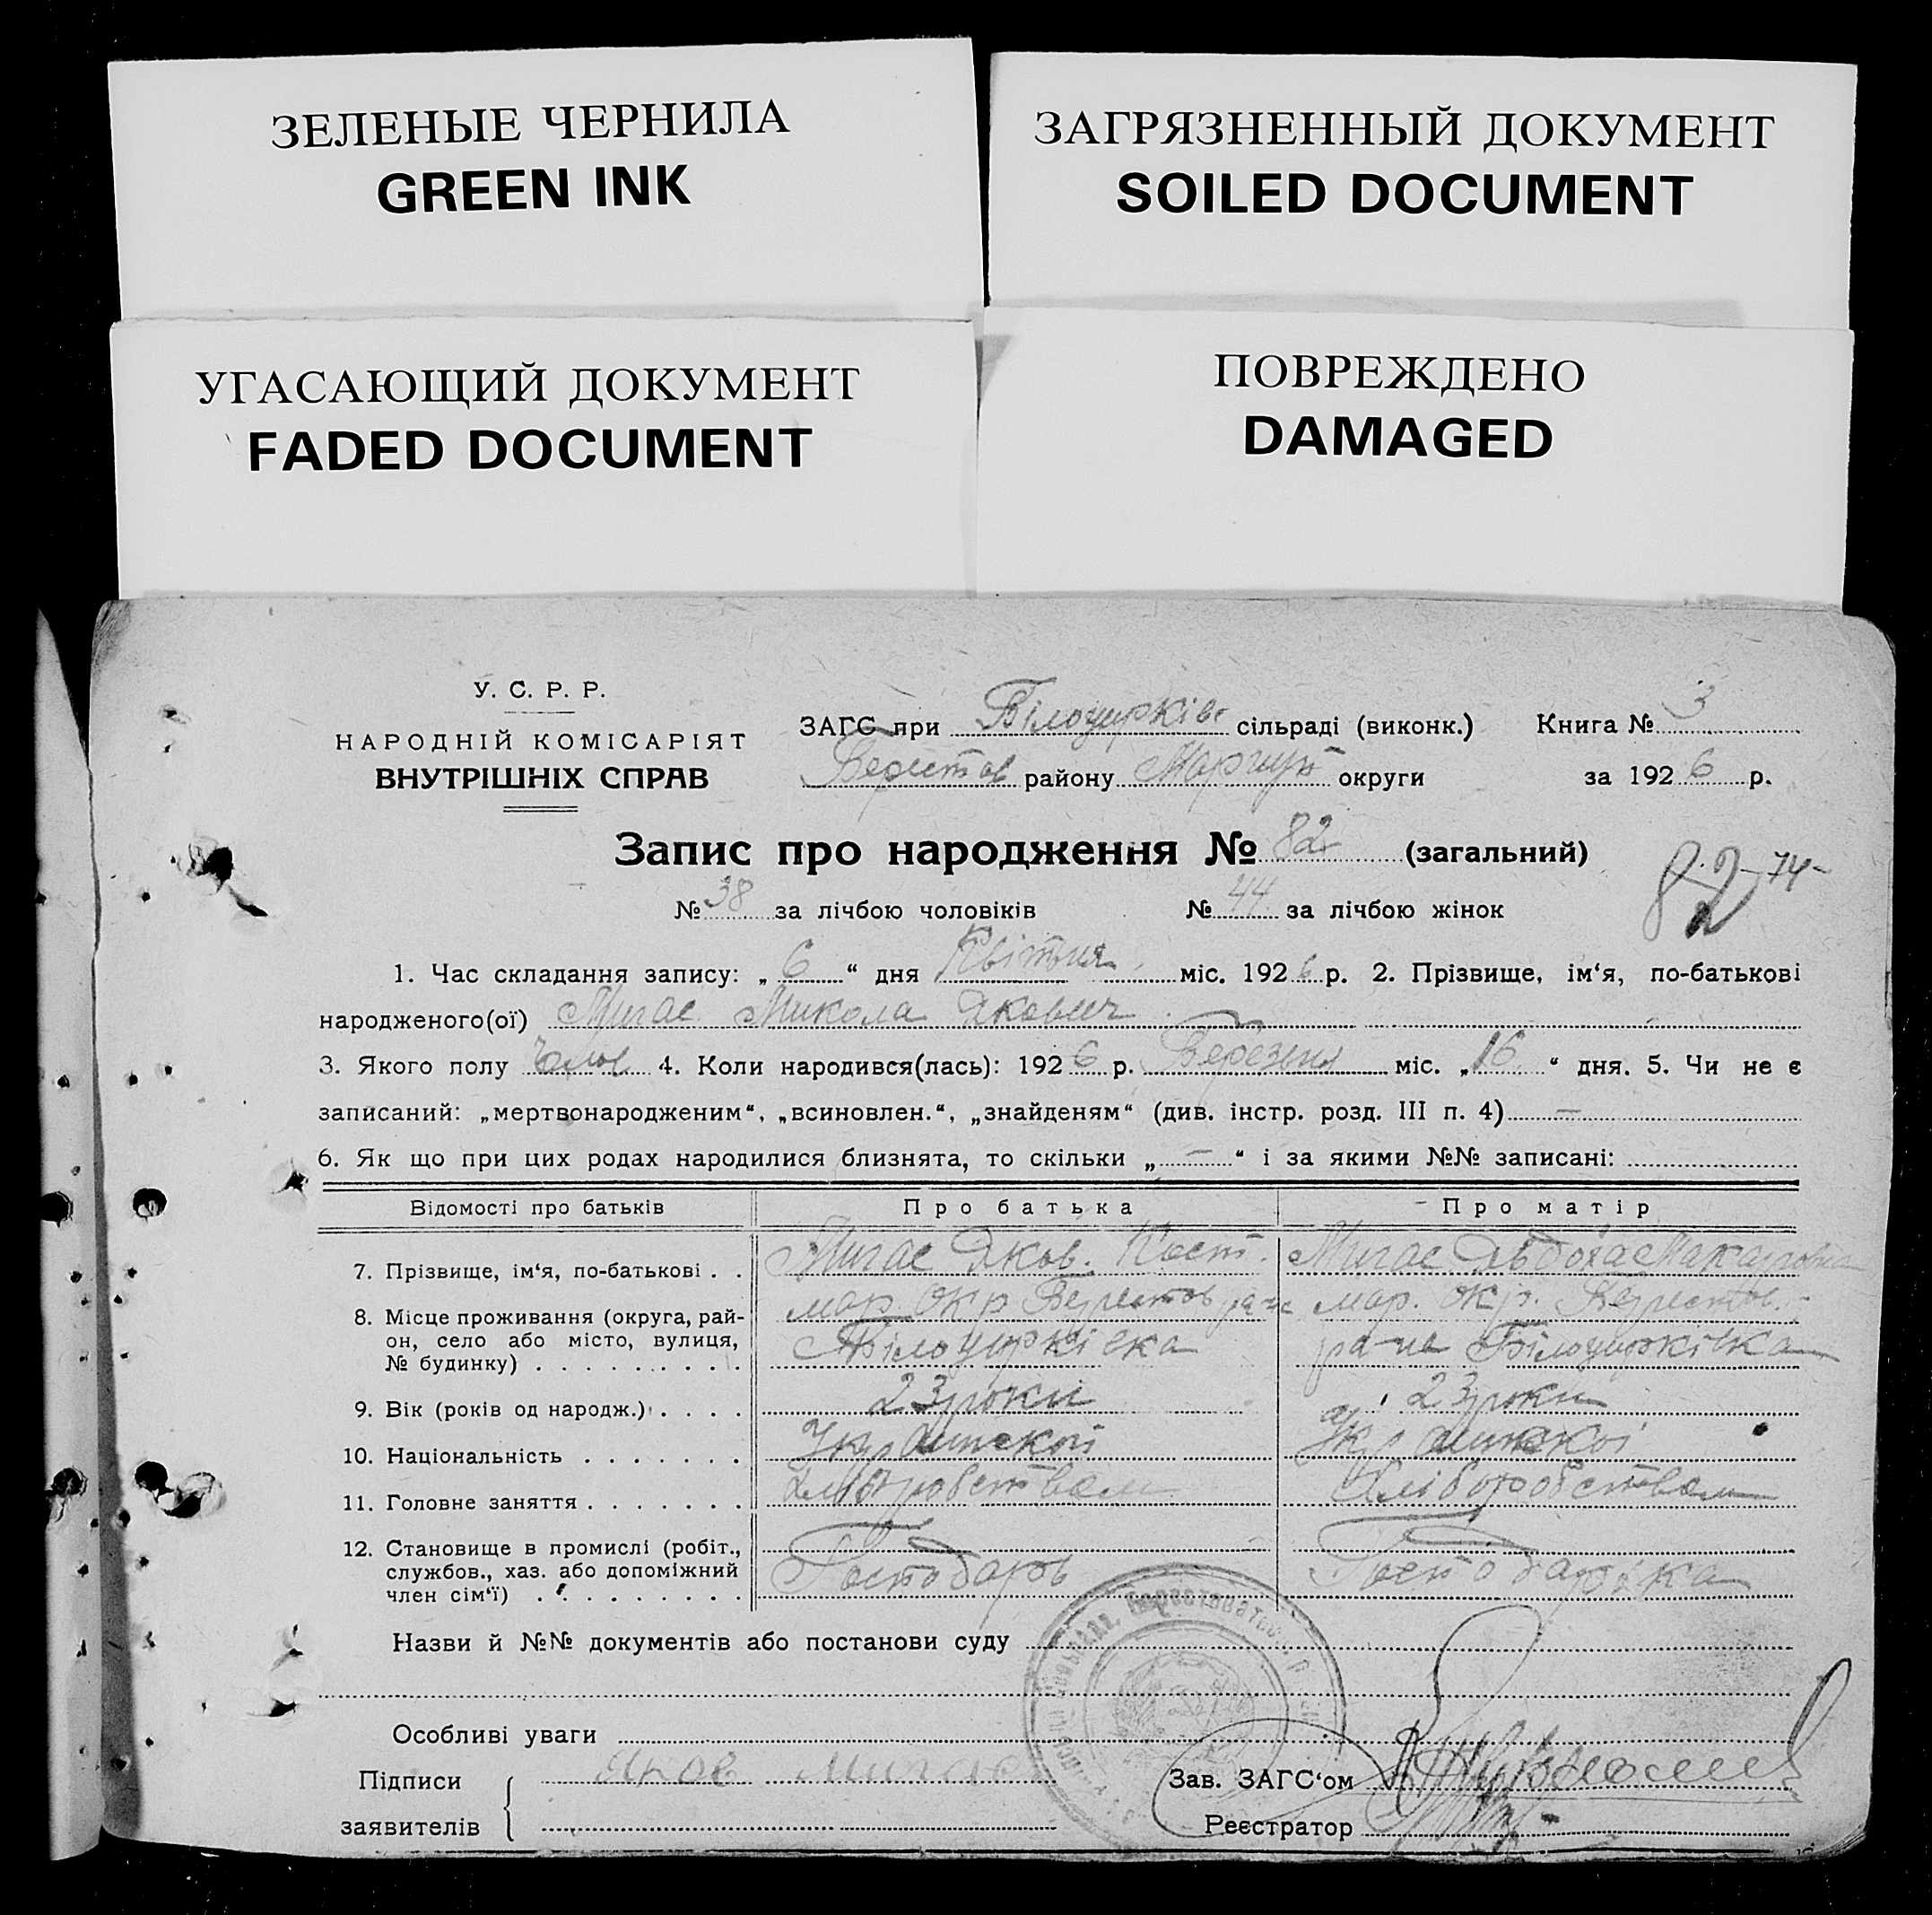 ЗЕЛЕНЫЕ ЧЕРНИЛА
GREEN INK
ЗАГРЯЗНЕННЫЙ ДОКУМЕНТ
SOILED DOCUMENT
УГАСАЮЩИЙ ДОКУМЕНТ
FADED DOCUMENT
ПОВРЕЖДЕНО
DAMAGED
У. С. Р. Р.
НАРОДНІЙ КОМІСАРІЯТ
ВНУТРІШНІХ СПРАВ
ЗАГС при Білоцерківс сільраді (виконк.) Книга № 3
Берестов району Маріуп округи за 1926 р.
Запис про народження № 82 (загальний)
82 74
№ 38 за лічбою чоловіків № 44 за лічбою жінок
1. Час складання запису: „6“ дня Квітня міс. 1926 р. 2. Прізвище, ім‘я, по-батькові
народженого(ої) Мигас Микола Якович
3. Якого полу Чолов 4. Коли народився(лась): 1926 р. Березня міс. „16“ дня. 5. Чи не є
записаний: „мертвонародженим“, „всиновлен.“, „знайденям“ (див. інстр. розд. III п. 4) —
6. Як що при цих родах народилися близнята, то скільки „—“ і за якими №№ записані:
Відомості про батьків Про батька Про матір
7. Прізвище, ім‘я, по-батькові Мигас Яков. Кост. Мигас Явдоха Макаровна
8. Місце проживання (округа, рай- мар. окр Берестов ра-на мар. окр. Берестов.
он, село або місто, вулиця, Білоцерківка ра-на Білоцерківка
№ будинку)
9. Вік (років од народж.) 23 роки 23 роки
10. Національність Украинскої Украинскої
11. Головне заняття Хліборобством Хліборобством
12. Становище в промислі (робіт.,
службов., хаз. або допоміжний Господарь Господарька
член сім‘ї)
Назви й №№ документів або постанови суду
Особливі уваги
Підписи Яков Мигас Зав. ЗАГС‘ом
заявителів Реєстратор